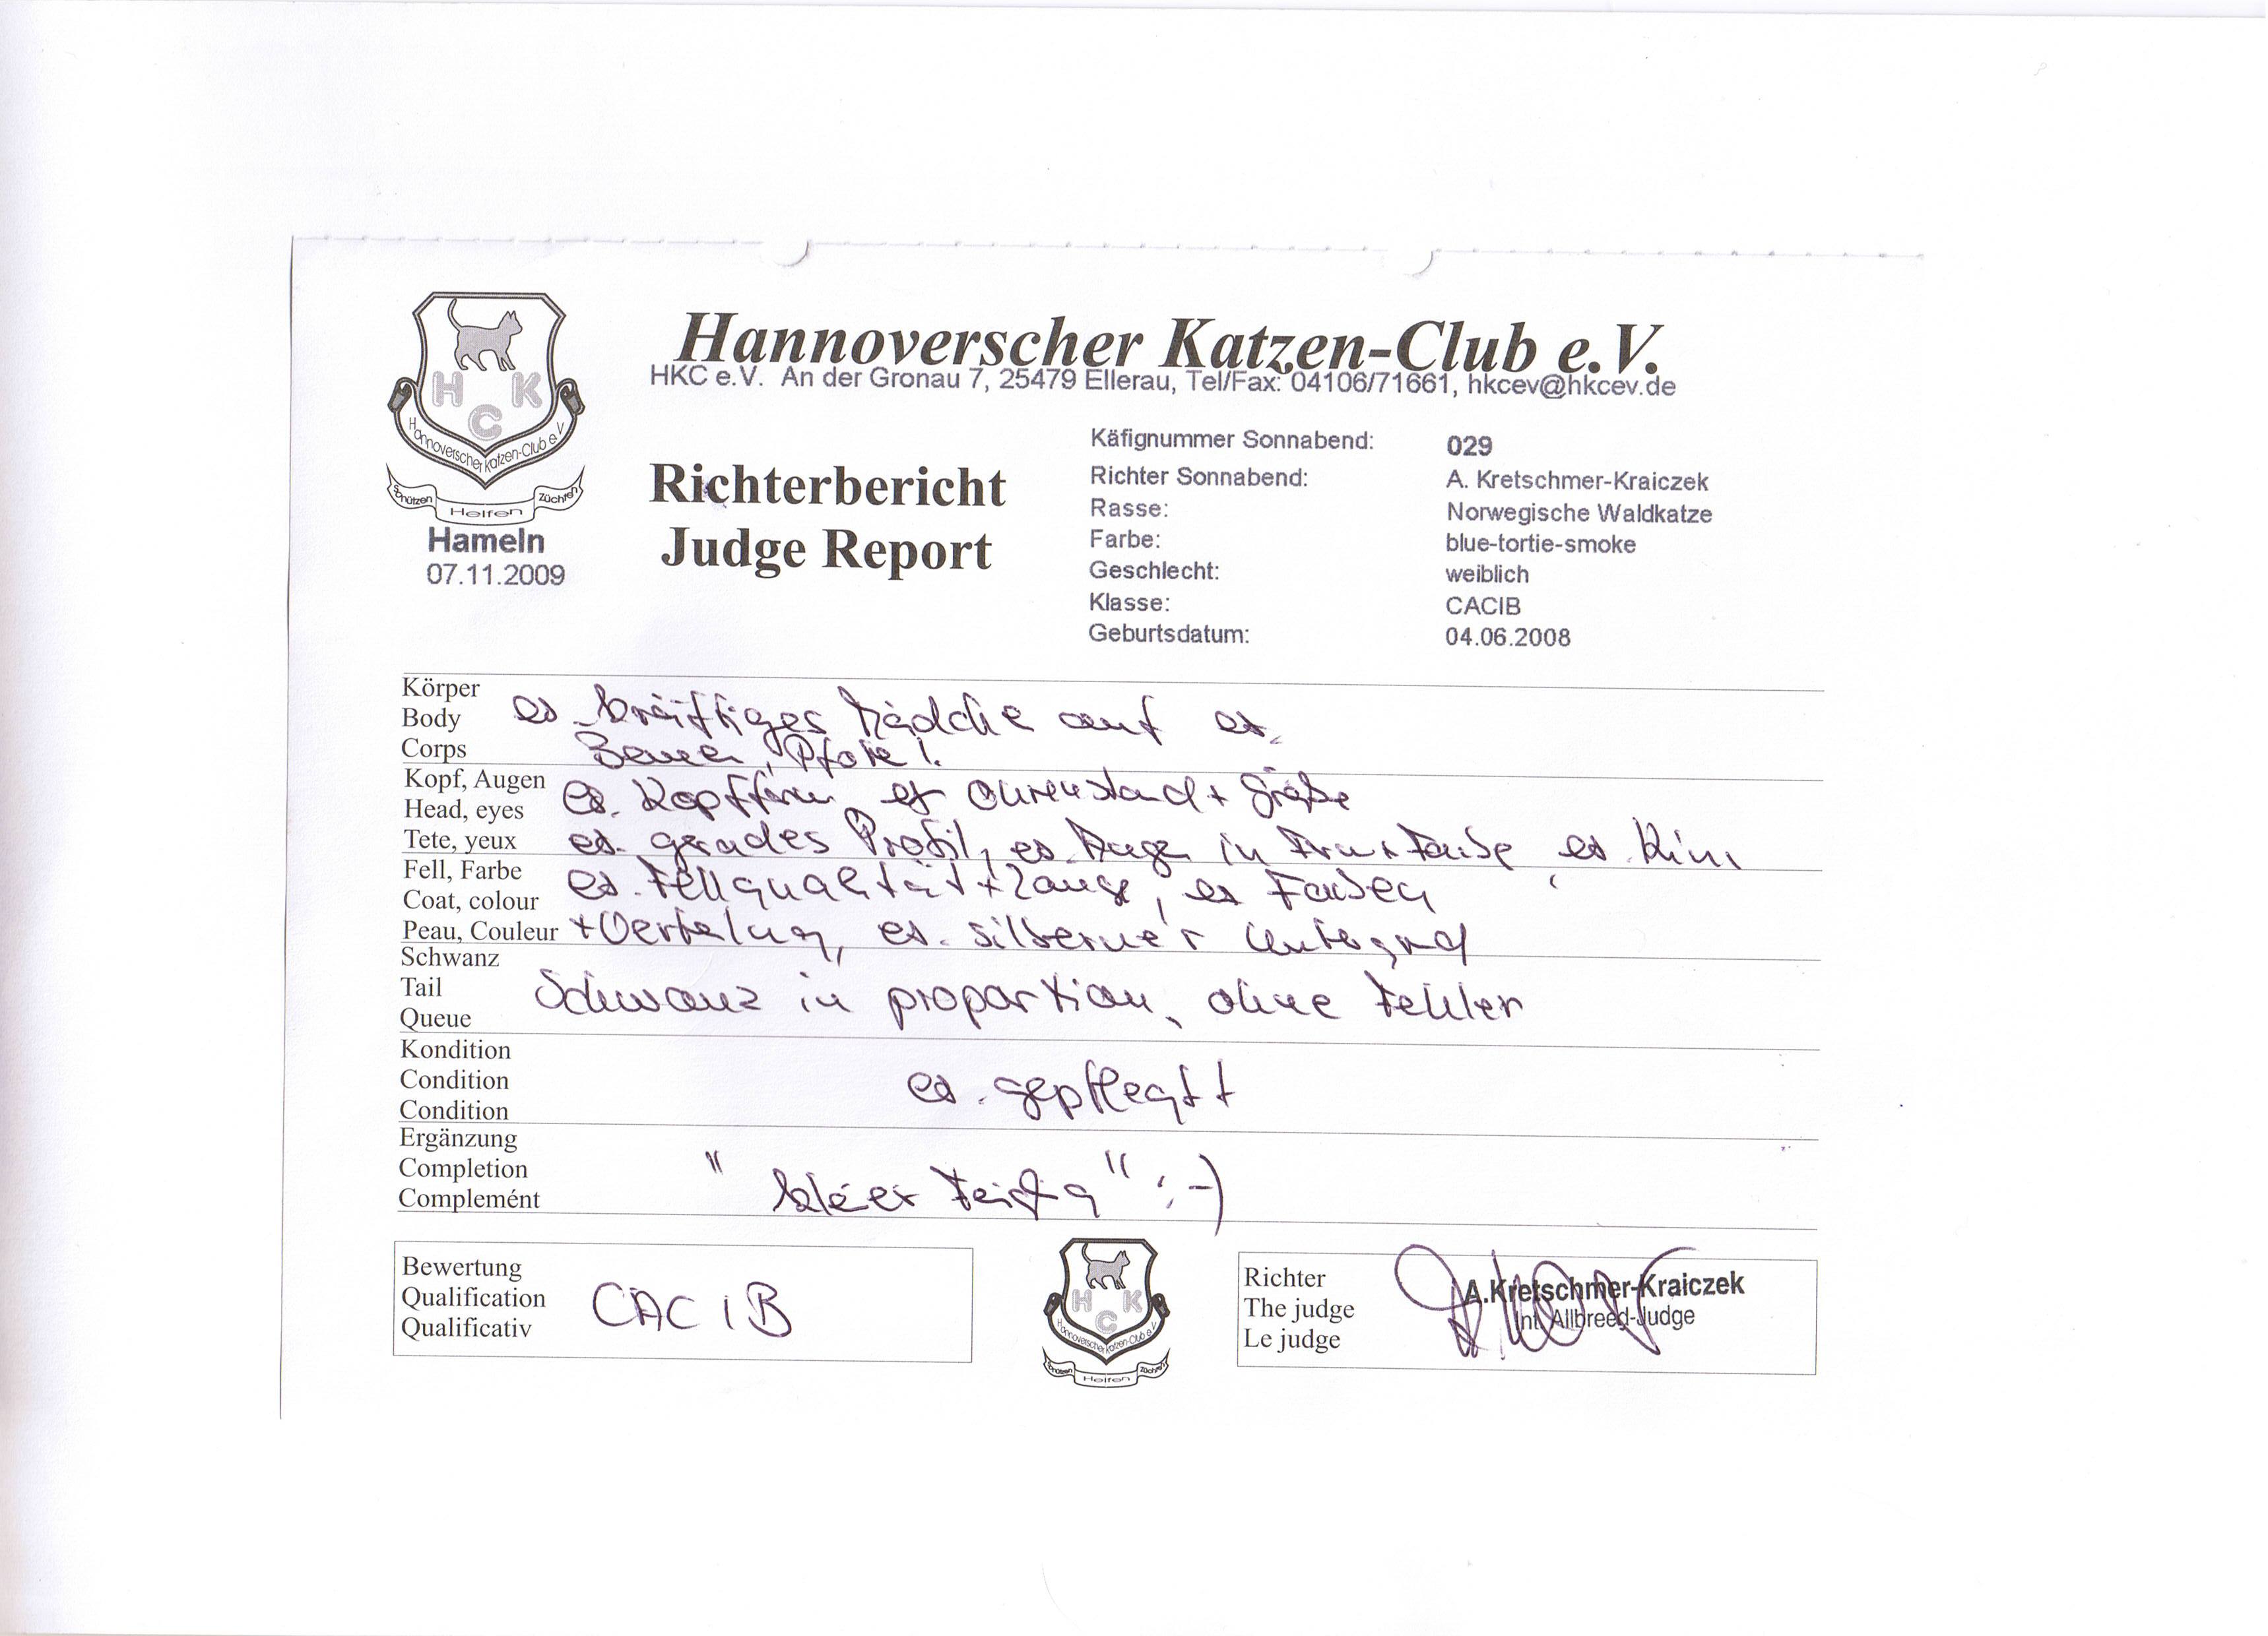 Hannoverscher Katzen-Club e.V.
HKC e.V. An der Gronau 7, 25479 Ellerau, Tel/Fax: 04106/71661, hkcev@hkcev.de
H K
C
Hannoverscher Katzen-Club e.V
Schützen Helfen Züchten
Hameln
07.11.2009
Richterbericht
Judge Report
Käfignummer Sonnabend: 029
Richter Sonnabend: A. Kretschmer-Kraiczek
Rasse: Norwegische Waldkatze
Farbe: blue-tortie-smoke
Geschlecht: weiblich
Klasse: CACIB
Geburtsdatum: 04.06.2008
Körper
Body
Corps
ex. kräftiges Mädche auf ex.
Beinen, Pfote!
Kopf, Augen
Head, eyes
Tete, yeux
ex. Kopfform, ex Ohrenstand + Größe
ex. gerades Profil, ex. Auge in Form + Farbe, ex. Kinn
Fell, Farbe
Coat, colour
Peau, Couleur
ex. Fellqualität + Länge, ex Farben
+ Verteilung, ex. silberner
Schwanz
Tail
Queue
Schwanz in proportion, ohne Fehler
Kondition
Condition
Condition
ex. gepflegt
Ergänzung
Completion
Complemént
" " :-)
Bewertung
Qualification
Qualificativ
CACIB
H K
C
Hannoverscher Katzen-Club e.V
Schützen Helfen Züchten
Richter
The judge
Le judge
A.Kretschmer-Kraiczek
Int. Allbreed-Judge